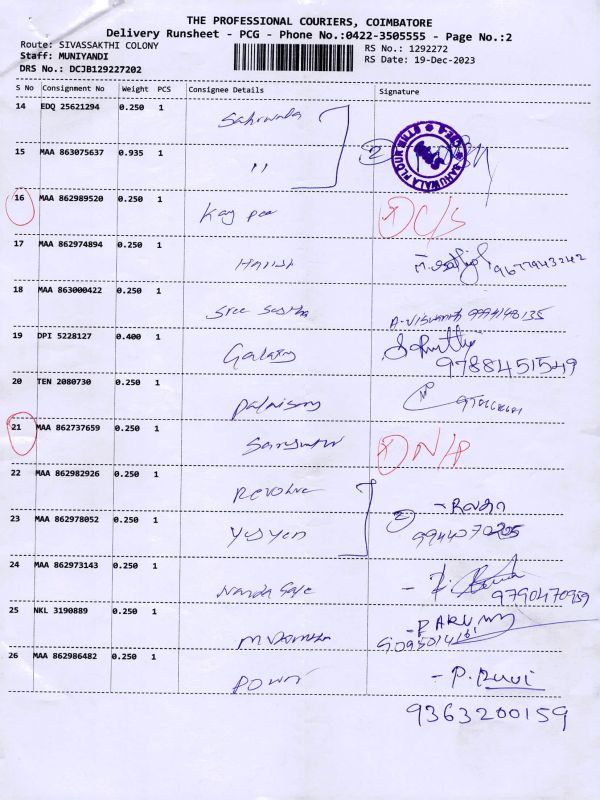 THE PROFESSIONAL COURIERS, COIMBATORE
Delivery Runsheet - PCG - Phone No.:0422-3505555 - Page No.:2
Route: SIVASSAKTHI COLONY RS No.: 1292272
Staff: MUNIYANDI RS Date: 19-Dec-2023
DRS No.: DCJB129227202
S No Consignment No Weight PCS Consignee Details Signature
14 EDQ 25621294 0.250 1
15 MAA 863075637 0.935 1 " 2
16 MAA 862989520 0.250 1 Kay pee C/S
17 MAA 862974894 0.250 1 Harish 9677943242
18 MAA 863000422 0.250 1 Sree 9994148135
19 DPI 5228127 0.400 1 Galaxy 9788451549
20 TEN 2080730 0.250 1 Palnisamy
21 MAA 862737659 0.250 1 N/P
22 MAA 862982926 0.250 1 Revolve
23 MAA 862978052 0.250 1 Yesyen 2
24 MAA 862973143 0.250 1 Nanda 9790470959
25 NKL 3190889 0.250 1
26 MAA 862986482 0.250 1 Power - P.
9363200159